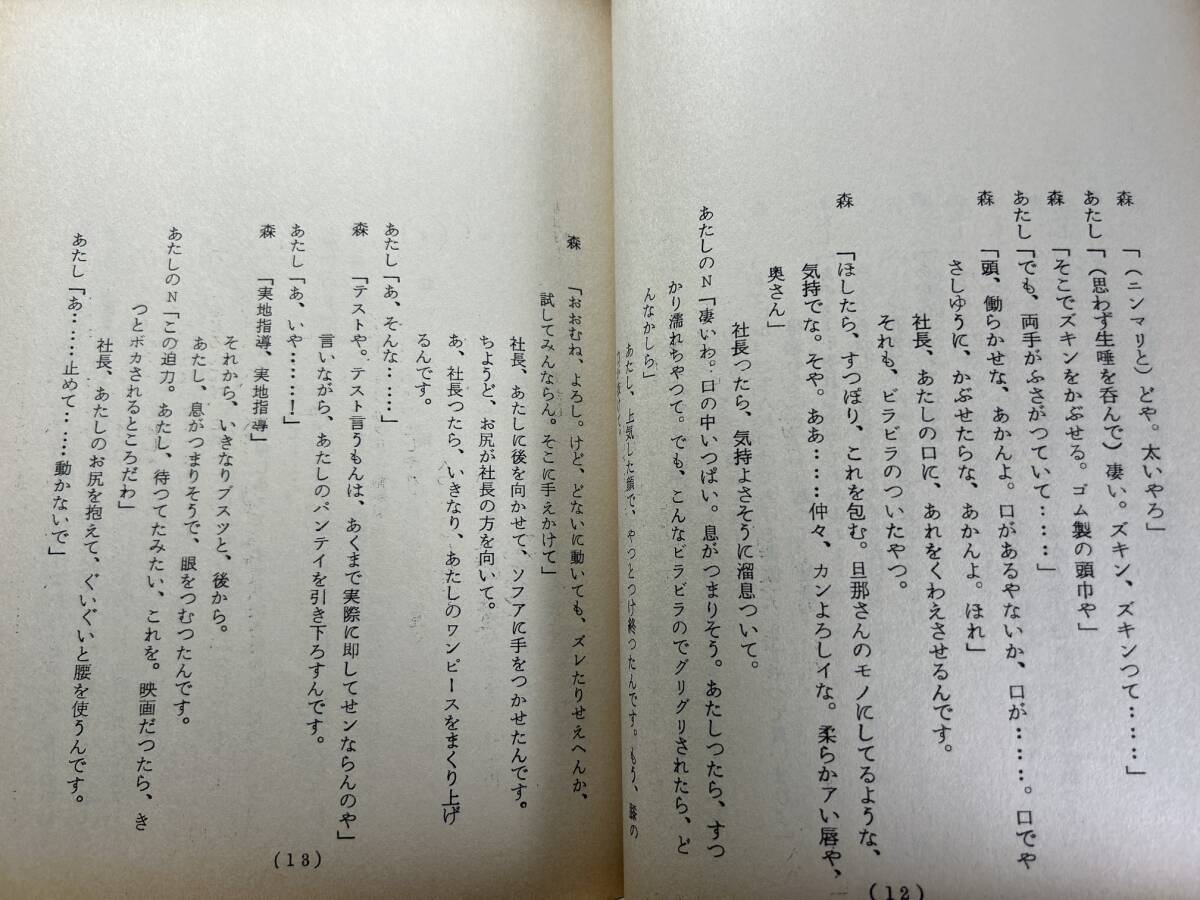 森　「（ニンマリと）どや。太いやろ」
あたし「（思わず生唾を呑んで）凄い。ズキン、ズキンつて……」
森　「そこでズキンをかぶせる。ゴム製の頭巾や」
あたし「でも、両手がふさがつていて……」
森　「頭、働らかせな、あかんよ。口があるやないか、口が……。口でや
さしゆうに、かぶせたらな、あかんよ。ほれ」
社長、あたしの口に、あれをくわえさせるんです。
それも、ビラビラのついたやつ。
森　「ほしたら、すつぽり、これを包む。旦那さんのモノにしてるような、
気持でな。そや。ああ……仲々、カンよろしイな。柔らかアい唇や、
奥さん」
社長つたら、気持よさそうに溜息ついて。
あたしのN「凄いわ。口の中いつぱい。息がつまりそう。あたしつたら、すつ
かり濡れちやつて。でも、こんなビラビラのでグリグリされたら、ど
んなかしら」
あたし、上気した顔で、やつとつけ終つたんです。もう、膝の
(12)
森　「おおむね、よろし。けど、どないに動いても、ズレたりせえへんか、
試してみんならん。そこに手えかけて」
社長、あたしに後を向かせて、ソフアに手をつかせたんです。
ちようど、お尻が社長の方を向いて。
あ、社長つたら、いきなり、あたしのワンピースをまくり上げ
るんです。
あたし「あ、そんな……」
森　「テストや。テスト言うもんは、あくまで実際に即してせンならんのや」
言いながら、あたしのパンテイを引き下ろすんです。
あたし「あ、いや………！」
森　「実地指導、実地指導」
それから、いきなりブスツと、後から。
あたし、息がつまりそうで、眼をつむつたんです。
あたしのN「この迫力。あたし、待つてたみたい、これを。映画だつたら、き
つとボカされるところだわ」
社長、あたしのお尻を抱えて、ぐいぐいと腰を使うんです。
あたし「あ……止めて……動かないで」
(13)